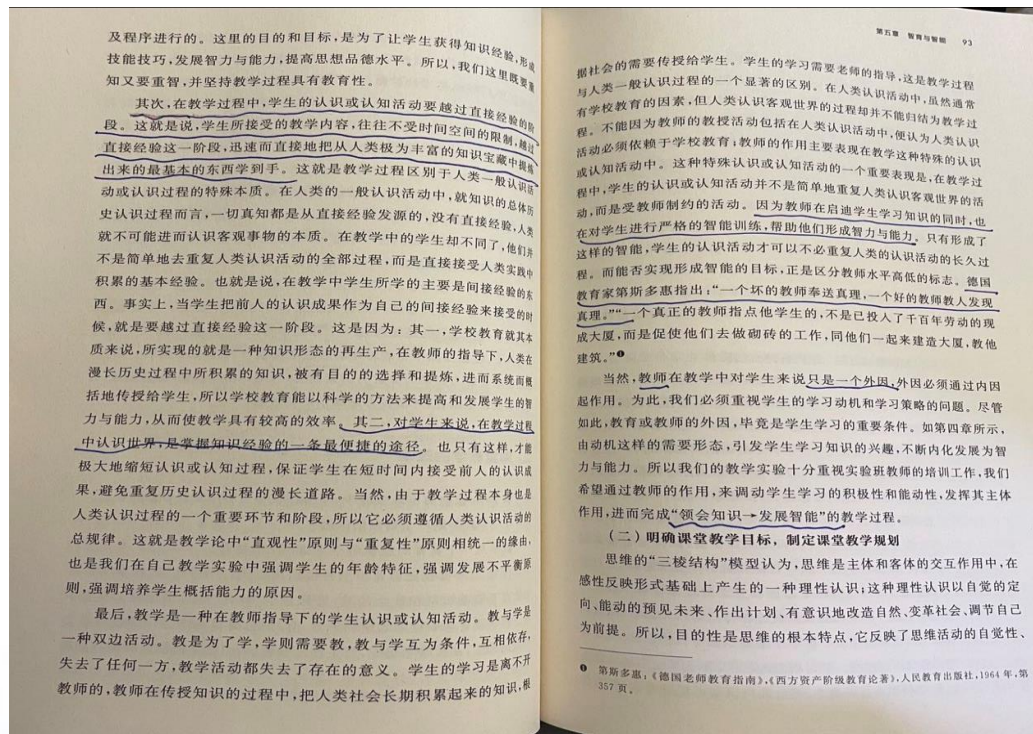 及程序进行的。这里的目的和目标,是为了让学生获得知识经验,形成
技能技巧,发展智力与能力,提高思想品德水平。所以,我们这里既要重
知又要重智,并坚持教学过程具有教育性。
其次,在教学过程中,学生的认识或认知活动要越过直接经验的阶
段。这就是说,学生所接受的教学内容,往往不受时间空间的限制,越过
直接经验这一阶段,迅速而直接地把从人类极为丰富的知识宝藏中提炼
出来的最基本的东西学到手。这就是教学过程区别于人类一般认识活
动或认识过程的特殊本质。在人类的一般认识活动中,就知识的总体历
史认识过程而言,一切真知都是从直接经验发源的,没有直接经验,人类
就不可能进而认识客观事物的本质。在教学中的学生却不同了,他们并
不是简单地去重复人类认识活动的全部过程,而是直接接受人类实践中
积累的基本经验。也就是说,在教学中学生所学的主要是间接经验的东
西。事实上,当学生把前人的认识成果作为自己的间接经验来接受的时
候,就是要越过直接经验这一阶段。这是因为:其一,学校教育就其本
质来说,所实现的就是一种知识形态的再生产,在教师的指导下,人类在
漫长历史过程中所积累的知识,被有目的的选择和提炼,进而系统而概
括地传授给学生,所以学校教育能以科学的方法来提高和发展学生的智
力与能力,从而使教学具有较高的效率。其二,对学生来说,在教学过程
中认识世界,是掌握知识经验的一条最便捷的途径。也只有这样,才能
极大地缩短认识或认知过程,保证学生在短时间内接受前人的认识成
果,避免重复历史认识过程的漫长道路。当然,由于教学过程本身也是
人类认识过程的一个重要环节和阶段,所以它必须遵循人类认识活动的
总规律。这就是教学论中“直观性”原则与“重复性”原则相统一的缘由,
也是我们在自己教学实验中强调学生的年龄特征,强调发展不平衡原
则,强调培养学生概括能力的原因。
最后,教学是一种在教师指导下的学生认识或认知活动。教与学是
一种双边活动。教是为了学,学则需要教,教与学互为条件,互相依存,
失去了任何一方,教学活动都失去了存在的意义。学生的学习是离不开
教师的,教师在传授知识的过程中,把人类社会长期积累起来的知识,根
第五章 智育与智能 93
据社会的需要传授给学生。学生的学习需要老师的指导,这是教学过程
与人类一般认识过程的一个显著的区别。在人类认识活动中,虽然通常
有学校教育的因素,但人类认识客观世界的过程却并不能归结为教学过
程。不能因为教师的教授活动包括在人类认识活动中,便认为人类认识
活动必须依赖于学校教育;教师的作用主要表现在教学这种特殊的认识
或认知活动中。这种特殊认识或认知活动的一个重要表现是,在教学过
程中,学生的认识或认知活动并不是简单地重复人类认识客观世界的活
动,而是受教师制约的活动。因为教师在启迪学生学习知识的同时,也
在对学生进行严格的智能训练,帮助他们形成智力与能力。只有形成了
这样的智能,学生的认识活动才可以不必重复人类的认识活动的长久过
程。而能否实现形成智能的目标,正是区分教师水平高低的标志。德国
教育家第斯多惠指出:“一个坏的教师奉送真理,一个好的教师教人发现
真理。”“一个真正的教师指点他学生的,不是已投入了千百年劳动的现
成大厦,而是促使他们去做砌砖的工作,同他们一起来建造大厦,教他
建筑。”❶
当然,教师在教学中对学生来说只是一个外因,外因必须通过内因
起作用。为此,我们必须重视学生的学习动机和学习策略的问题。尽管
如此,教育或教师的外因,毕竟是学生学习的重要条件。如第四章所示,
由动机这样的需要形态,引发学生学习知识的兴趣,不断内化发展为智
力与能力。所以我们的教学实验十分重视实验班教师的培训工作,我们
希望通过教师的作用,来调动学生学习的积极性和能动性,发挥其主体
作用,进而完成“领会知识→发展智能”的教学过程。
(二)明确课堂教学目标,制定课堂教学规划
思维的“三棱结构”模型认为,思维是主体和客体的交互作用中,在
感性反映形式基础上产生的一种理性认识;这种理性认识以自觉的定
向、能动的预见未来、作出计划、有意识地改造自然、变革社会、调节自己
为前提。所以,目的性是思维的根本特点,它反映了思维活动的自觉性、
❶ 第斯多惠:《德国老师教育指南》,《西方资产阶级教育论著》,人民教育出版社,1964年,第
357页。